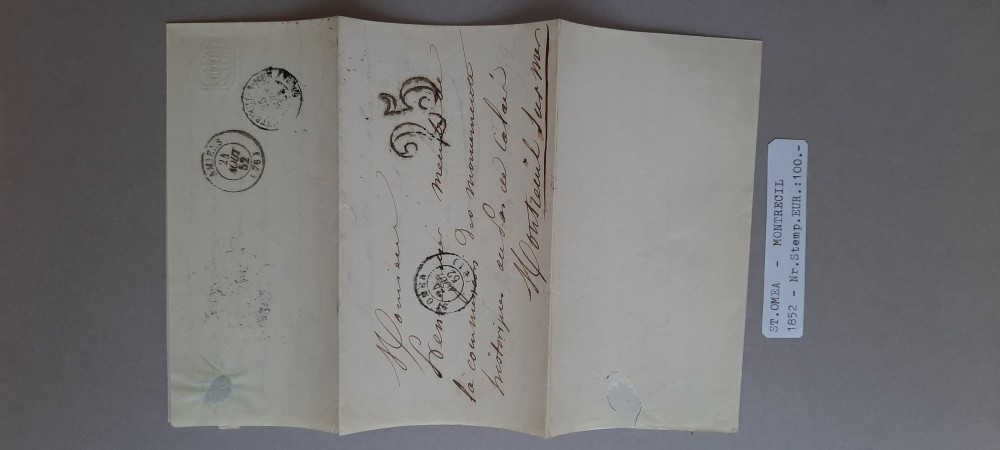 Monsieur
membre de
la commission des monuments
historiques du Pas de Calais
Montreuil sur mer
25
ST OMER
52
AMIENS
24
AOUT
52
(76)
ST.OMEA - MONTRECIL
1852 - Nr.Stemp.EUR.:100.-